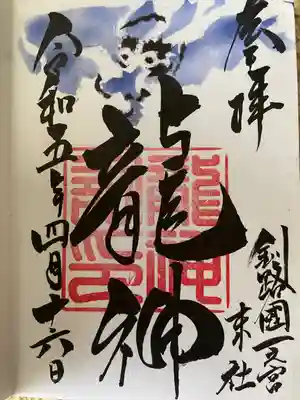 奉拝
釧路國一之宮
末社
龍神
令和五年四月十六日